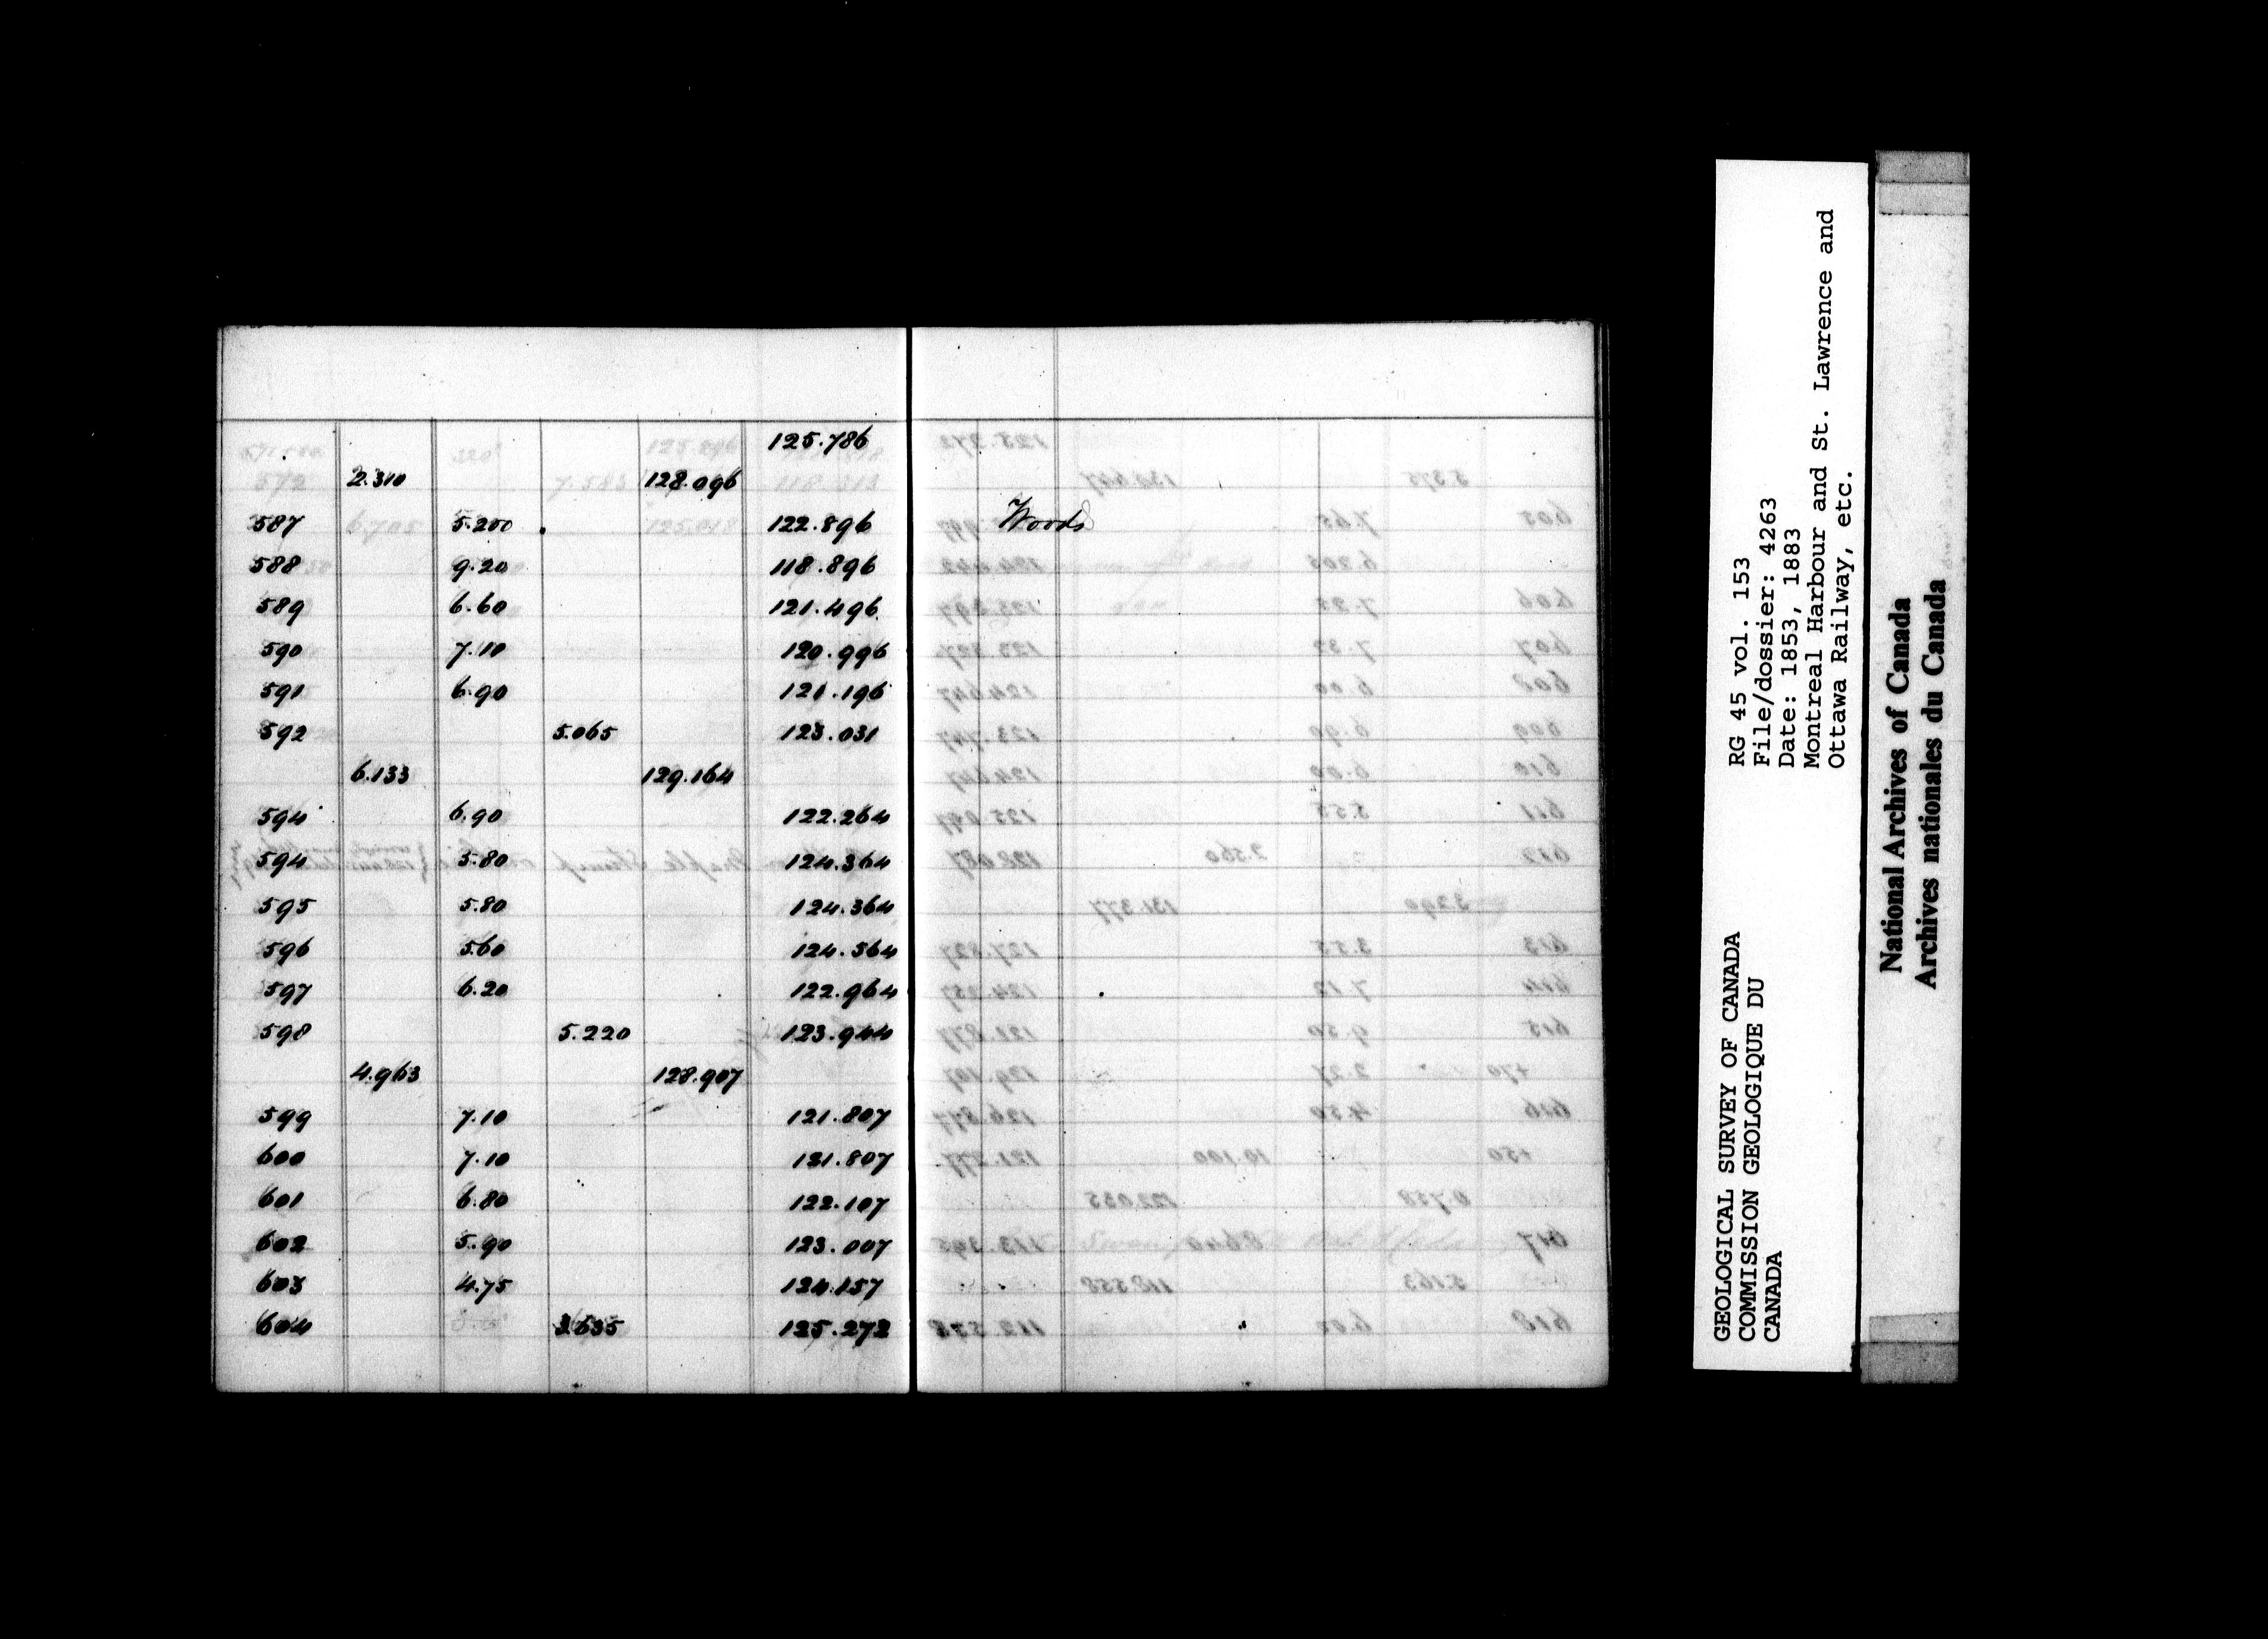 125.786
2.310 128.096
587 5.200 122.896 Woods
588 9.20 118.896
589 6.60 121.496
590 7.10 120.996
591 6.90 121.196
592 5.065 123.031
6.133 129.164
594 6.90 122.264
594 5.80 124.364
595 5.80 124.364
596 5.60 124.564
597 6.20 122.964
598 5.220 123.944
4.963 128.907
599 7.10 121.807
600 7.10 121.807
601 6.80 122.107
602 5.90 123.007
603 4.75 124.157
604 3.635 125.272
GEOLOGICAL SURVEY OF CANADA
COMMISSION GEOLOGIQUE DU
CANADA
RG 45 vol. 153
File/dossier: 4263
Date: 1853, 1883
Montreal Harbour and St. Lawrence and
Ottawa Railway, etc.
National Archives of Canada
Archives nationales du Canada